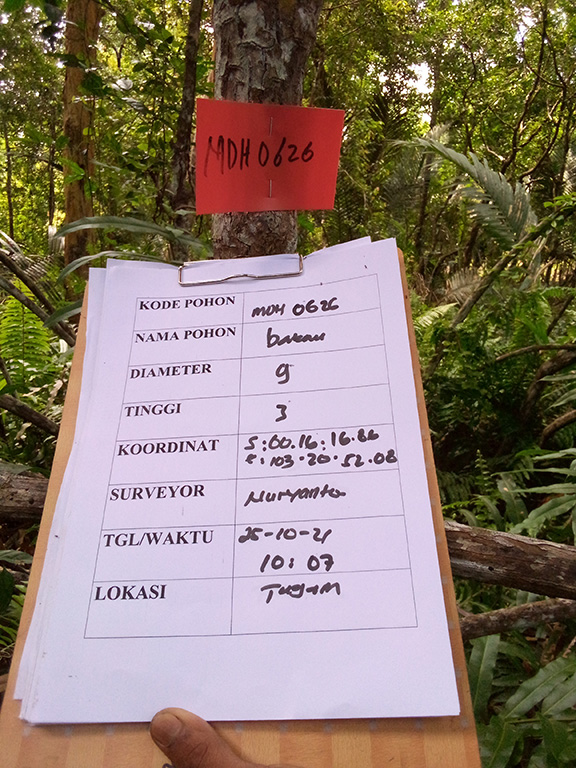 MDH 0626
KODE POHON MDH 0626
NAMA POHON bakau
DIAMETER 9
TINGGI 3
KOORDINAT S:00.16:16.86
E:103.20.52.08
SURVEYOR Nuryanto
TGL/WAKTU 25-10-21
10:07
LOKASI